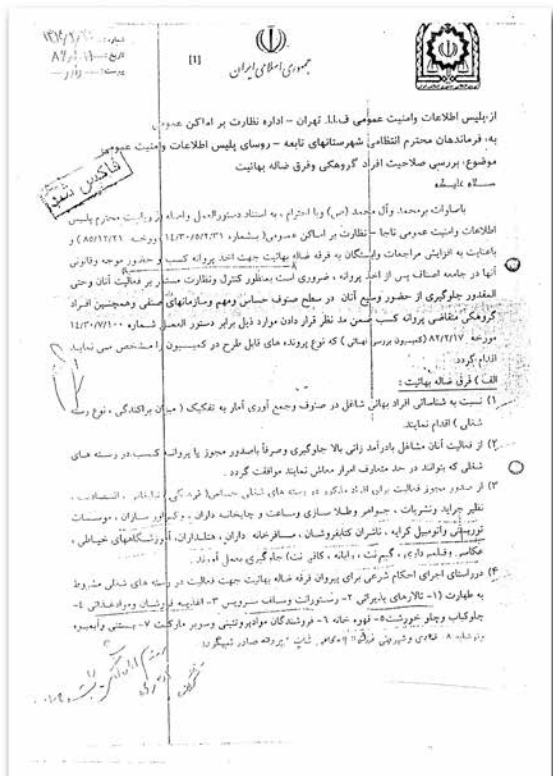 [1]
جمهوری اسلامی ایران
شماره:
تاریخ:
پیوست:
از: پلیس اطلاعات وامنیت عمومی ف.ا.ا. تهران - اداره نظارت بر اماکن عمومی
به: فرماندهان محترم انتظامی شهرستانهای تابعه - روسای پلیس اطلاعات وامنیت عمومی
موضوع: بررسی صلاحیت افراد گروهکی وفرق ضاله بهائیت
فاکس شد
سلام علیکم
باصلوات برمحمد وآل محمد (ص) وبا احترام ، به استناد دستورالعمل واصله از ریاست محترم پلیس
اطلاعات وامنیت عمومی ناجا - نظارت بر اماکن عمومی( بشماره ۱۴/۳۰/۵/۲/۳۱ ورخه ۸۵/۱۲/۲۱ ) و
باعنایت به افزایش مراجعات وابستگان به فرقه ضاله بهائیت جهت اخذ پروانه کسب و حضور موجه وقانونی
آنها در جامعه اصناف پس از اخذ پروانه ، ضروری است بمنظور کنترل ونظارت مستمر بر فعالیت آنان وحتی
المقدور جلوگیری از حضور وسیع آنان در سطح صنوف حساس ومهم وسازمانهای صنفی وهمچنین افراد
گروهکی متقاضی پروانه کسب ضمن مد نظر قرار دادن موارد ذیل برابر دستور العمل شماره ۱۴/۳۰/۷/۱۰۰
مورخه ۸۲/۲/۱۷ (کمیسیون بررسی نهائی ) که نوع پرونده های قابل طرح در کمیسیون را مشخص می نماید
اقدام گردد.
الف ) فرق ضاله بهائیت :
۱) نسبت به شناسائی افراد بهائی شاغل در صنوف وجمع آوری آمار به تفکیک ( میزان پراکندگی ، نوع رسته
شغلی ) اقدام نمایند.
۲) از فعالیت آنان مشاغل بادرآمد زائی بالا جلوگیری وصرفاً باصدور مجوز یا پروانه کسب در رسته های
شغلی که بتوانند در حد متعارف امرار معاش نمایند موافقت گردد .
۳) از صدور مجوز فعالیت برای افراد مذکور در رسته های شغلی حساس( فرهنگی ، تبلیغاتی ، اقتصادی ،
نظیر جراید ونشریات ، جواهر وطلا سازی وساعت و چاپخانه داران ، موسسات
توریستی واتومبیل کرایه ، ناشران کتابفروشان ، مسافرخانه داران ، هتلداران، آموزشگاههای خیاطی ،
عکاسی وفیلمبرداری ، گیم نت ، رایانه ، کافی نت) جلوگیری بعمل آورند .
۴) درراستای اجرای احکام شرعی برای پیروان فرقه ضاله بهائیت جهت فعالیت در رسته های شغلی مشروط
به طهارت (۱- تالارهای پذیرائی ۲- رستورانت وسلف سرویس ۳- اغذیه فروشان وموادغذائی ۴-
چلوکباب وچلو خورشت ۵- قهوه خانه ۶- فروشندگان موادپروتئینی وسوپر مارکت ۷- بستنی وآبمیوه
ونوشابه ۸- قنادی وشیرینی فروشی پروانه صادر نمیگردد.